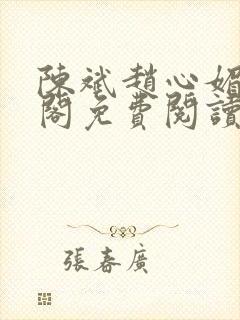 陳斌趙心媚
閣免費閱讀
張春廣